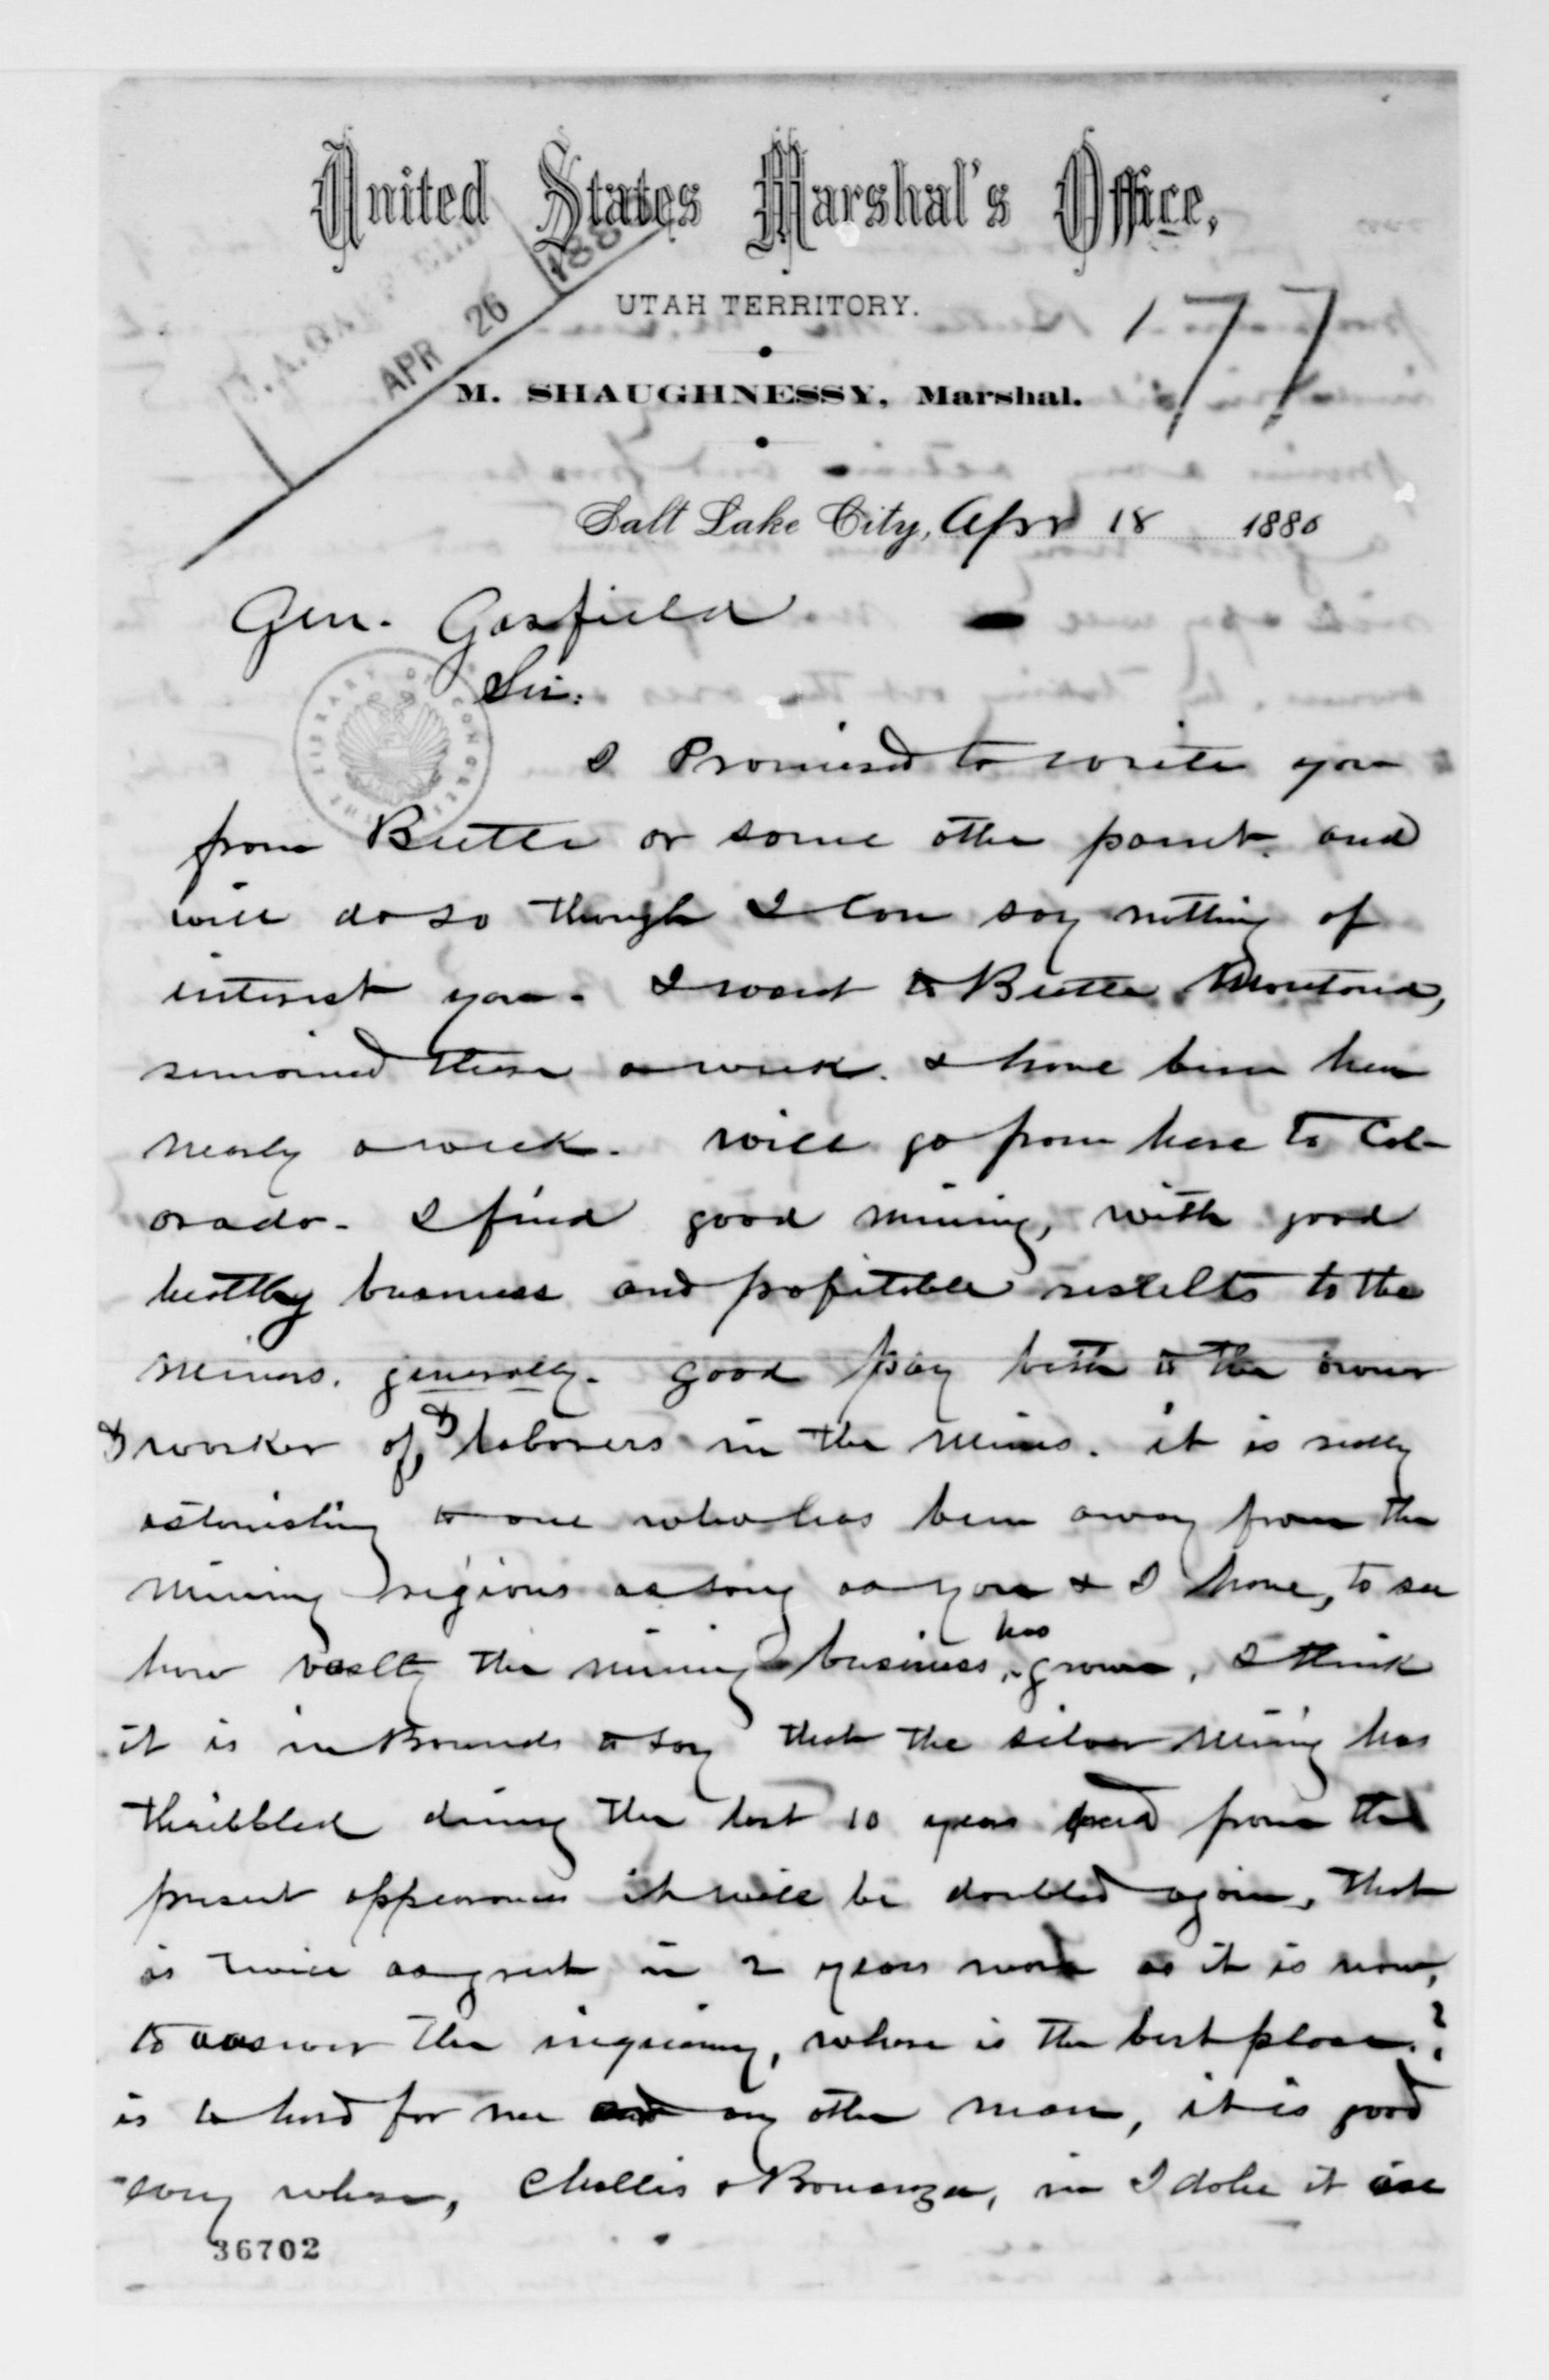 United States Marshal's Office,
UTAH TERRITORY.
J. A. GARFIELD
APR 26 188
177
M. SHAUGHNESSY, Marshal.
Salt Lake City, Apr 18 1880
Gen. Garfield
Sir:
THE LIBRARY OF CONGRESS
I Promised to write you
from Butte or some other point. and
will do so though I can say nothing of
interest you. I went to Butte Montana,
remained there a week. & have been here
nearly a week. will go from here to Col-
orado. I find good mining, with good
healthy business and profitable results to the
miners. generally. good pay both to the owner
& worker of, & laborers in the mines. it is really
astonishing to one who has been away from the
mining regions as long as you & I have, to see
how vastly the mining business has grown, I think
it is in Bounds to say that the silver mining has
thribbled during the last 10 years and from the
present appearances it will be doubled again, that
is twice as great in 2 years more as it is now,
to answer the inquiry, where is the best place.?
is to hard for me any other man, it is good
every where, Challis & Bonanza, in Idaho it
36702